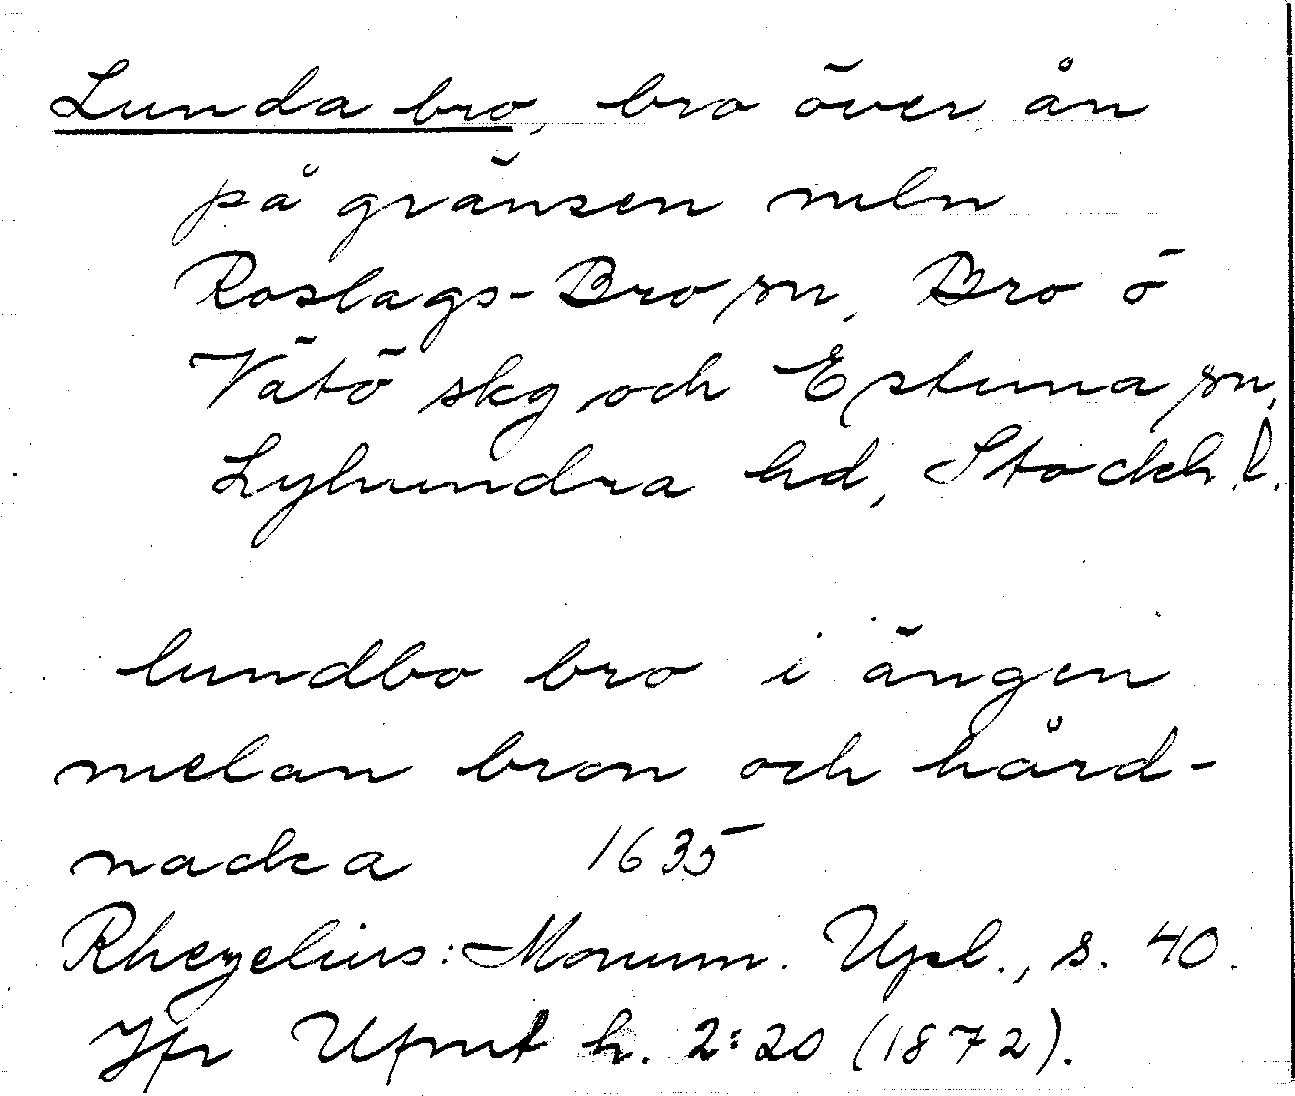 Lunda bro, bro över ån
på gränsen mln
Roslags-Bro sn, Bro o
Vätö skg och Estuna sn,
Lyhundra hd, Stockh. l.
lundbo bro i ängen
melan bron och hård-
nacka 1635
Rhezelius: Monum. Upl., s. 40.
Jfr Ufmt h. 2:20 (1872).